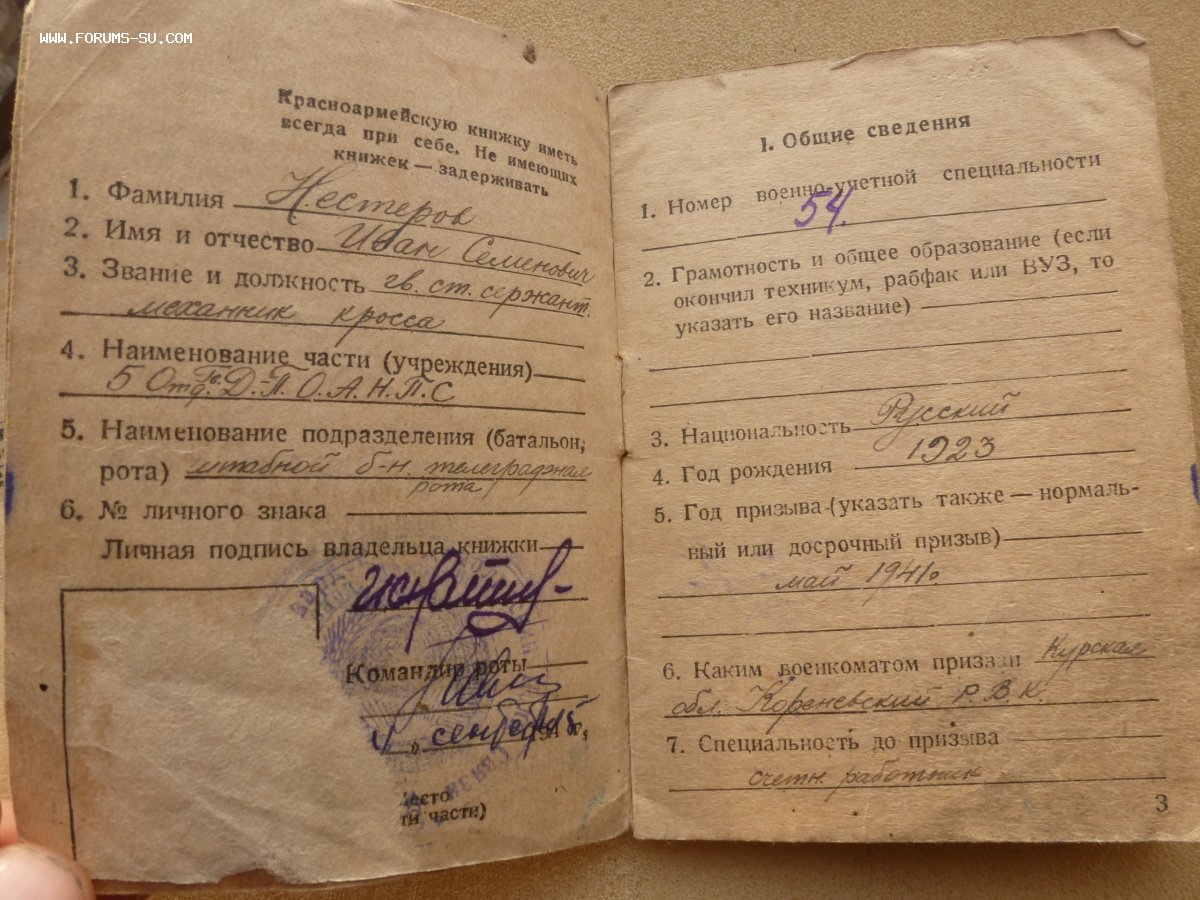 WWW.FORUMS-SU.COM
Красноармейскую книжку иметь
всегда при себе. Не имеющих
книжек — задерживать
1. Фамилия Нестеров
2. Имя и отчество Иван Семенович
3. Звание и должность гв. ст. сержант.
механик кросса
4. Наименование части (учреждения)
5 Отд. Гв. Д-П.О.А.Н.П.С
5. Наименование подразделения (батальон,
рота) штабной б-н телеграфная
рота
6. № личного знака
Личная подпись владельца книжки
Командир роты
" сентября 1945 г.
место
ти части)
I. Общие сведения
1. Номер военно-учетной специальности
54.
2. Грамотность и общее образование (если
окончил техникум, рабфак или ВУЗ, то
указать его название)
3. Национальность Русский
4. Год рождения 1923
5. Год призыва (указать также — нормаль-
ный или досрочный призыв)
май 1941г.
6. Каким военкоматом призван Курская
обл. Кореневский Р.В.К.
7. Специальность до призыва
счетн. работник
3